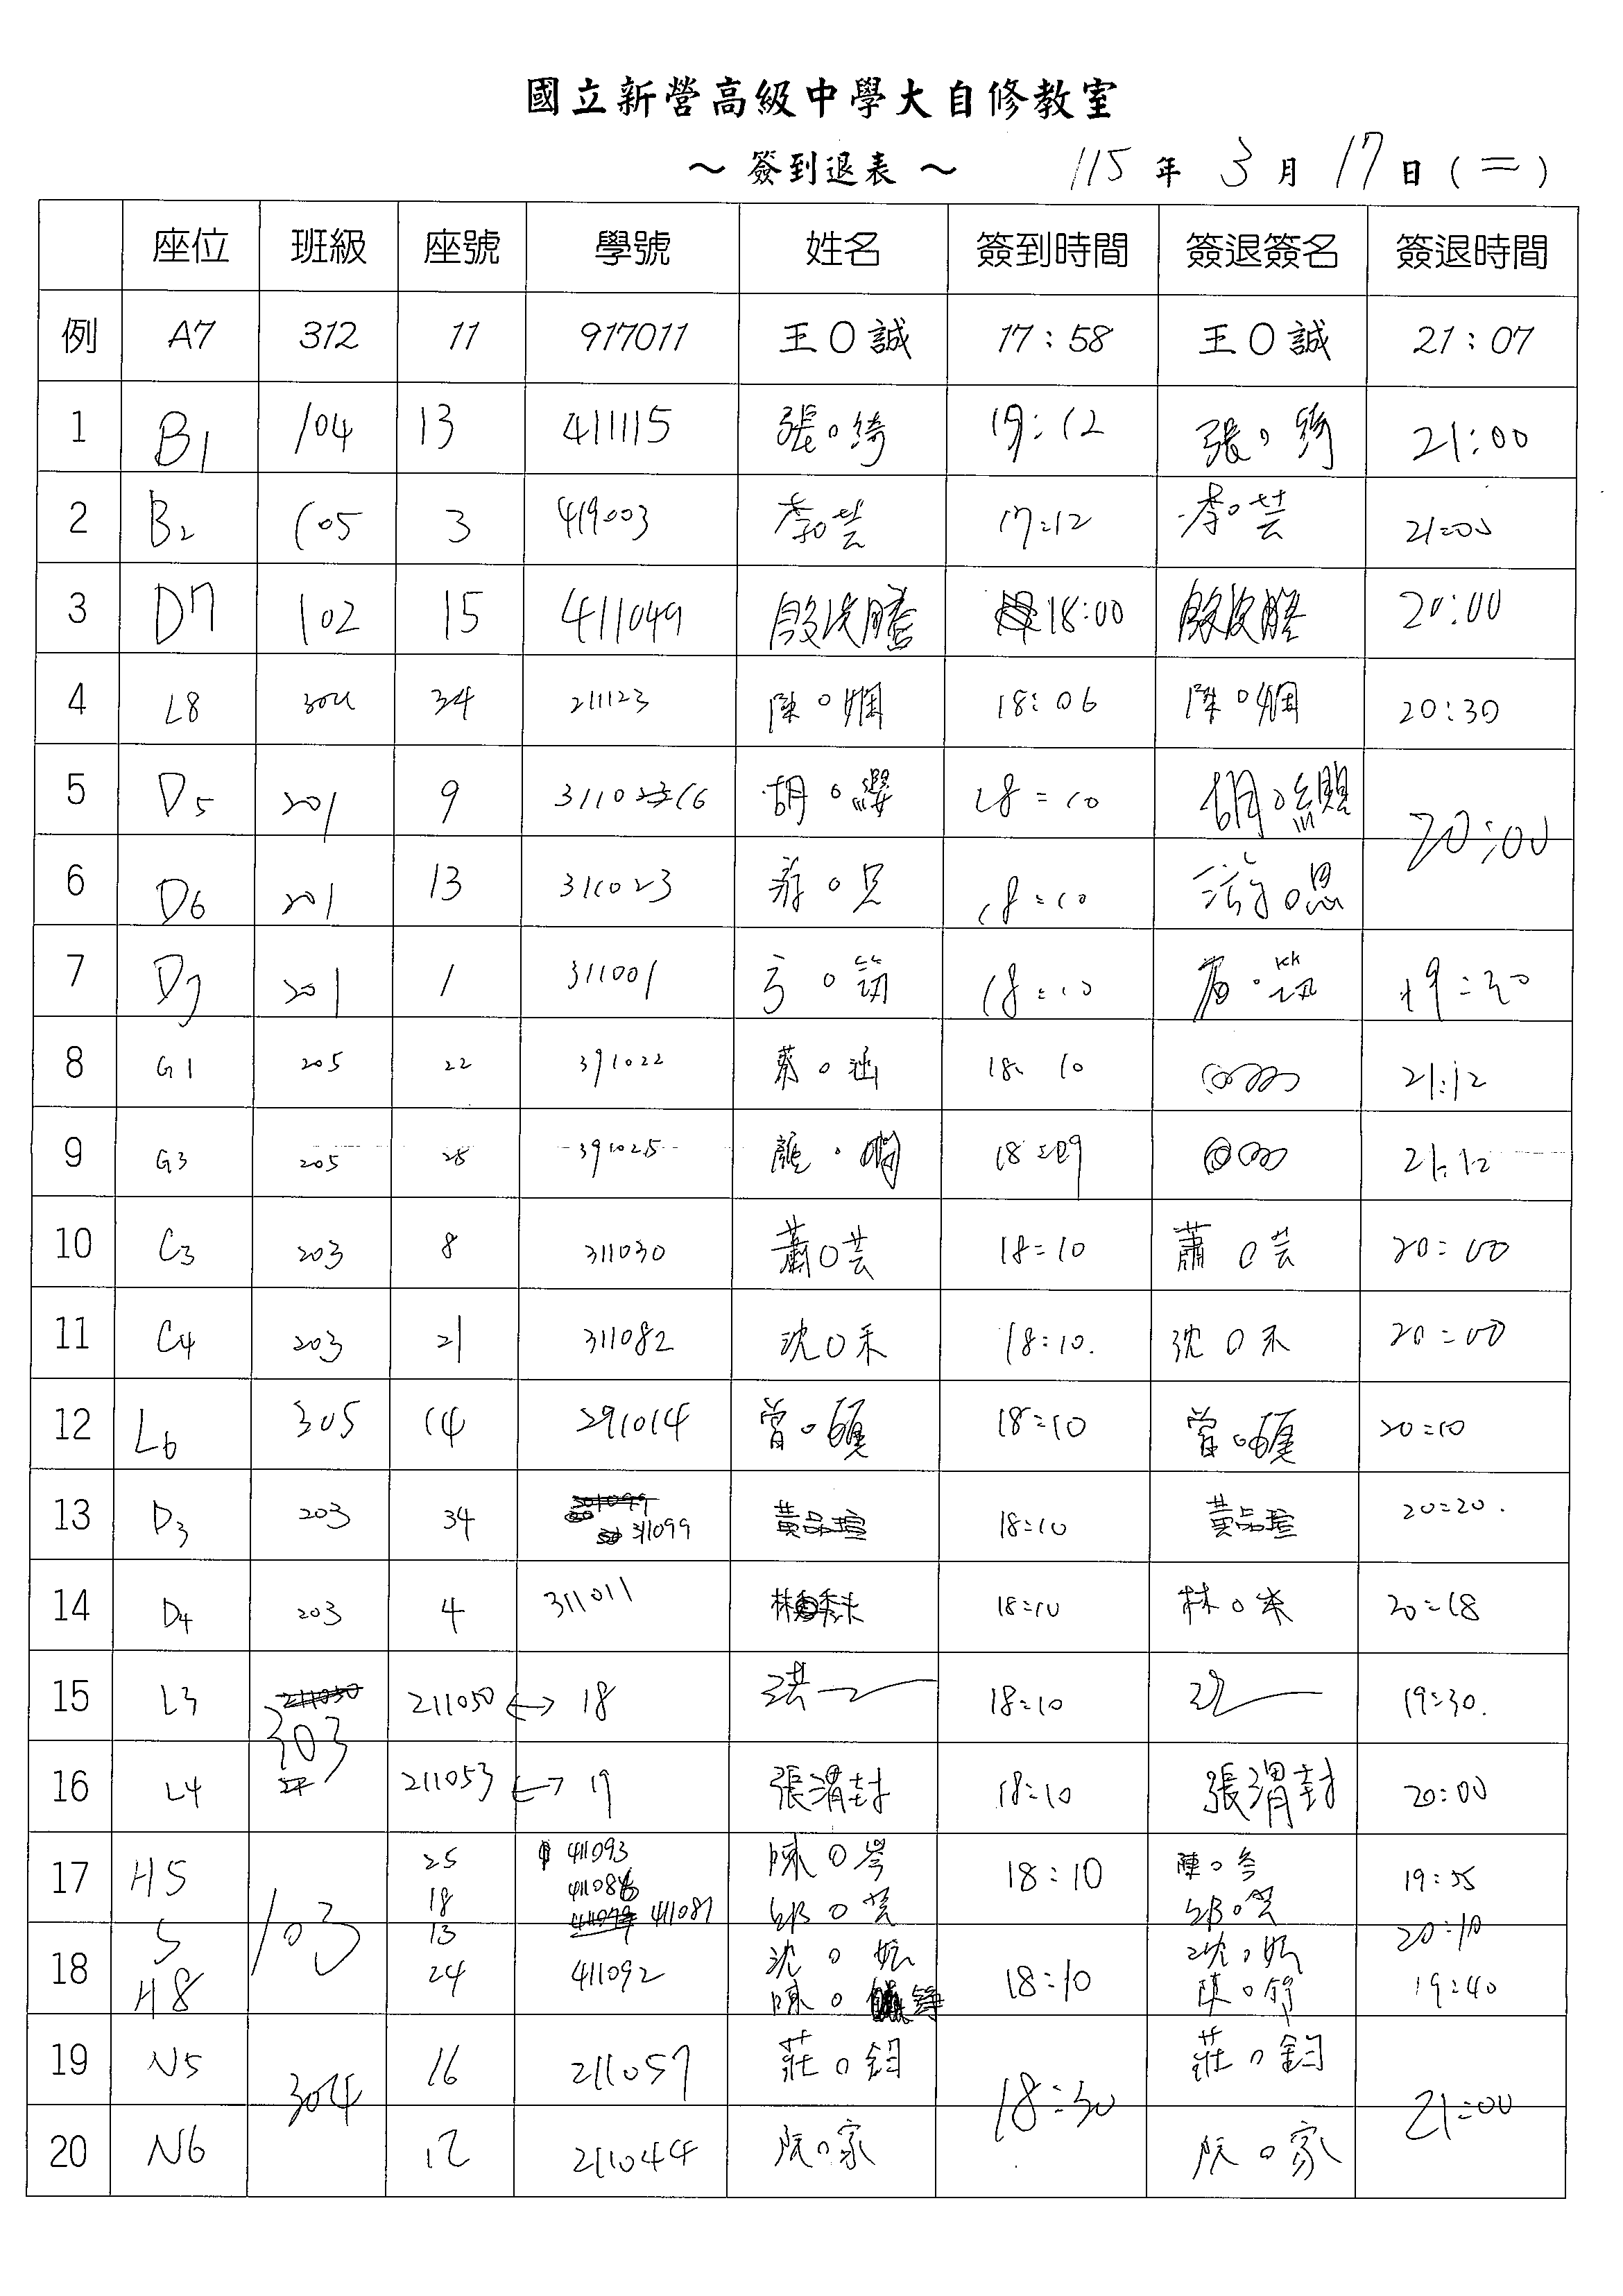 國立新營高級中學大自修教室
～簽到退表～ 115年3月17日(二)
座位 班級 座號 學號 姓名 簽到時間 簽退簽名 簽退時間
例 A7 312 11 917011 王O誠 17:58 王O誠 21:07
1 B1 104 13 411115 張O綺 17:12 張O綺 21:00
2 B2 105 3 419003 李O芸 17:12 李O芸 21:00
3 D7 102 15 411049 18:00 20:00
4 L8 304 34 211123 陳O嫻 18:06 陳O嫻 20:30
5 D5 201 9 311016 胡O纓 18:10 胡O纓 20:00
6 D6 201 13 311023 游O恩 18:10 游O恩
7 D7 201 1 311001 18:10 19:20
8 G1 205 22 391022 蔡O涵 18:10 21:12
9 G3 205 28 18:09 21:12
10 C3 203 8 311030 蕭O芸 18:10 蕭O芸 20:00
11 C4 203 21 311082 沈O禾 18:10. 沈O禾 20:00
12 L6 305 14 291014 曾O 18:10 曾O 20:10
13 D3 203 34 311099 黃品瑄 18:10 黃品瑄 20:20.
14 D4 203 4 311011 林 18:10 林O 20:18
15 L3 303 211050 ↔ 18 洪 18:10 19:30.
16 L4 211053 ↔ 19 張渭封 18:10 張渭封 20:00
17 H5 103 25 411093 陳O岑 18:10 陳O岑 19:55
18 邱O萱 邱O萱
411087 20:10
18 H8 13 沈O妘 18:10 沈O妘
24 411092 陳O錚 陳O錚 19:40
19 N5 304 16 211057 莊O鈞 18:30 莊O鈞 21:00
20 N6 12 211044 阮O家 阮O家